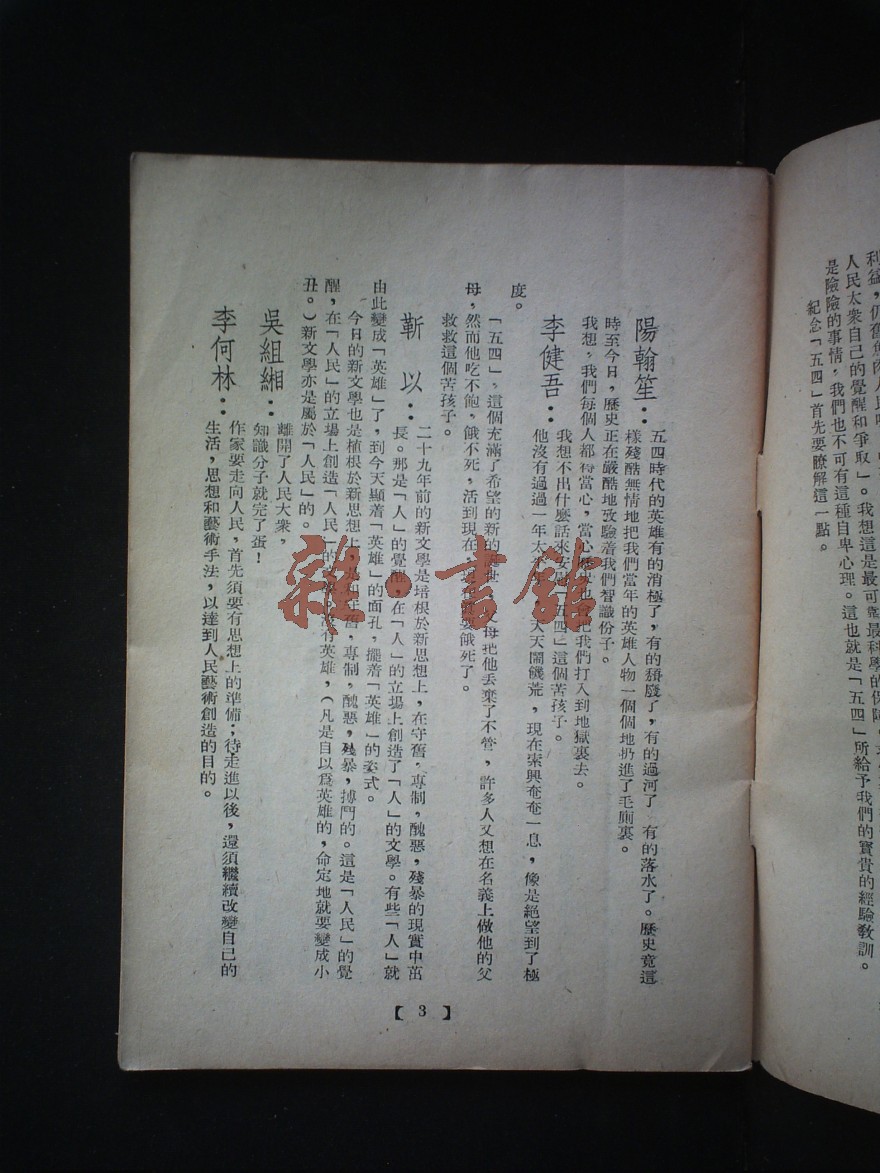 利益，仍舊魚肉人民
人民大衆自己的覺醒和爭取」。我想這是最可靠最科學的保障
是險險的事情，我們也不可有這種自卑心理。這也就是「五四」所給予我們的寶貴的經驗教訓。
紀念「五四」首先要瞭解這一點。
陽翰笙：五四時代的英雄有的消極了，有的頹廢了，有的過河了 有的落水了。歷史竟這
樣殘酷無情地把我們當年的英雄人物一個個地扔進了毛廁裏。
時至今日，歷史正在嚴酷地攷驗着我們智識份子。
我想，我們每個人都得當心，當心歷史也會把我們打入到地獄裏去。
李健吾：我想不出什麼話來安慰「五四」這個苦孩子。
他沒有過過一年太平年，天天鬧饑荒，現在索興奄奄一息，像是絕望到了極
度。
「五四」，這個充滿了希望的新的 父母把他丟棄了不管，許多人又想在名義上做他的父
母，然而他吃不飽，餓不死，活到現在 要餓死了。
救救這個苦孩子。
靳以：二十九年前的新文學是培根於新思想上，在守舊，專制，醜惡，殘暴的現實中茁
長。那是「人」的覺醒，在「人」的立場上創造了「人」的文學。有些「人」就
由此變成「英雄」了，到今天顯着「英雄」的面孔，擺着「英雄」的姿式。
今日的新文學也是植根於新思想上，是和守舊，專制，醜惡，殘暴，搏鬥的。這是「人民」的覺
醒，在「人民」的立場上創造「人民」的文學。沒有英雄，（凡是自以爲英雄的，命定地就要變成小
丑。）新文學亦是屬於「人民」的。
吳組緗：離開了人民大衆，
知識分子就完了蛋！
李何林：作家要走向人民，首先須要有思想上的準備；待走進以後，還須繼續改變自己的
生活，思想和藝術手法，以達到人民藝術創造的目的。
【3】
雜·書館